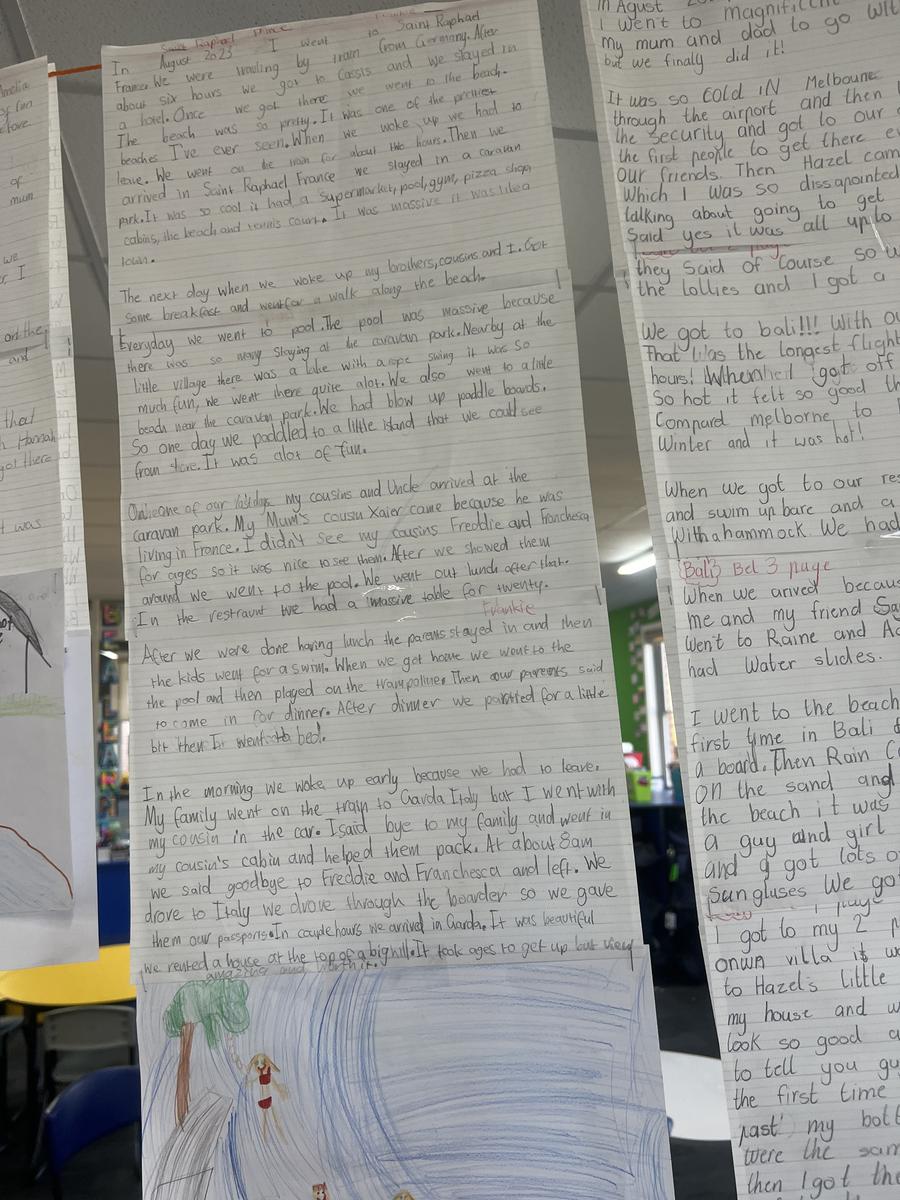 Amelia
of fun
before
of
mum
we
I
and
that
Hannah
got there
t was
Saint Raphael France
Frankie
In August 2023 I went to Saint Raphael
France. We were traveling by train from Germany. After
about six hours we got to Cassis and we stayed in
a hotel. Once we got there we went to the beach.
The beach was so pretty. It was one of the prettiest
beaches I've ever seen. When we woke up we had to
leave. We went on the train for about two hours. Then we
arrived in Saint Raphael France we stayed in a caravan
park. It was so cool it had a supermarket, pool, gym, pizza shop,
cabins, the beach and tennis court. It was massive it was like a
town.
The next day when we woke up my brothers, cousins and I. Got
some breakfast and went for a walk along the beach.
Everyday we went to pool. The pool was massive because
there was so many staying at the caravan park. Nearby at the
little village there was a lake with a rope swing it was so
much fun, we went there quite alot. We also went to a little
beach near the caravan park. We had blow up paddle boards.
So one day we paddled to a little island that we could see
from shore. It was alot of fun.
On one of our holidays my cousins and Uncle arrived at the
caravan park. My Mum's cousin Xaier came because he was
living in France. I didn't see my cousins Freddie and Franchesca
for ages so it was nice to see them. After we showed them
around we went to the pool. We went out lunch after that.
In the restraunt we had a massive table for twenty.
Frankie
After we were done having lunch the parents stayed in and then
the kids went for a swim. When we got home we went to the
the pool and then played on the trampoline. Then our parents said
to come in for dinner. After dinner we partied for a little
bit then It went to bed.
In the morning we woke up early because we had to leave.
My family went on the train to Garda Italy but I went with
my cousin in the car. I said bye to my family and went in
my cousin's cabin and helped them pack. At about 8am
we said goodbye to Freddie and Franchesca and left. We
drove to Italy we drove through the boarder so we gave
them our passports. In couple hours we arrived in Garda. It was beautiful
we rented a house at the top of a big hill. It took ages to get up but view
amazing and worth it.
In Agust
I went to magnificent
my mum and dad to go wit
but we finally did it!
It was so COLD IN Melboune
through the airport and then
the security and got to our
the first people to get there
our friends. Then Hazel cam
Which I was so dissapointed
talking about going to get
Said yes it was all up to
they Said of Course so
the lollies and I got a
We got to bali!!! With ou
That was the longest flight
hours! When I got off
So hot it felt so good th
Compard melborne to
Winter and it was hot!
When we got to our res
and swim up bare and a
With a hammock We had
Bali Bel 3 page
When we arived becaus
me and my friend Sa
Went to Raine and A
had Water slides.
I went to the beach
first time in Bali
a board. Then Rain C
on the sand and
the beach it was
a guy and girl
and I got lots o
Sunglasses We go
page
I got to my 2
onwn villa it w
to Hazel's little
my house and w
look so good a
to tell you gu
the first time
past my bott
Were the sam
then I got the